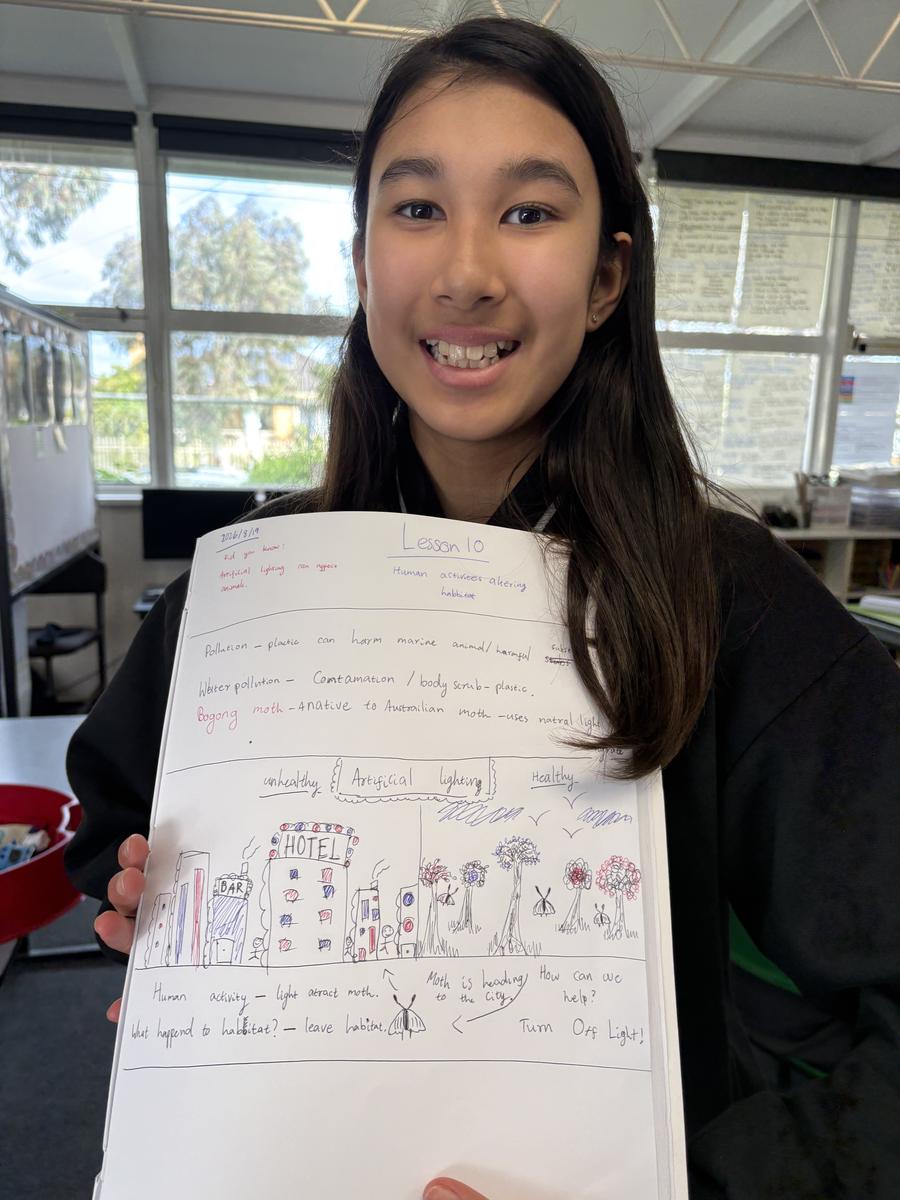 2026/3/19
Lesson 10
Did you know:
Artificial lighting can
animals.
Human activities altering
habbitat
Pollution - plactic can harm marine animal/harmful
Water pollution - Contamation / body scrub - plastic.
Bogong moth - a native to Austrailian moth - uses natral light
unhealthy
Artificial lighting
Healthy
HOTEL
BAR
Human activity - light atract moth.
Moth is heading
to the city.
How can we
help?
What happend to habbitat? - leave habitat.
Turn Off Light!